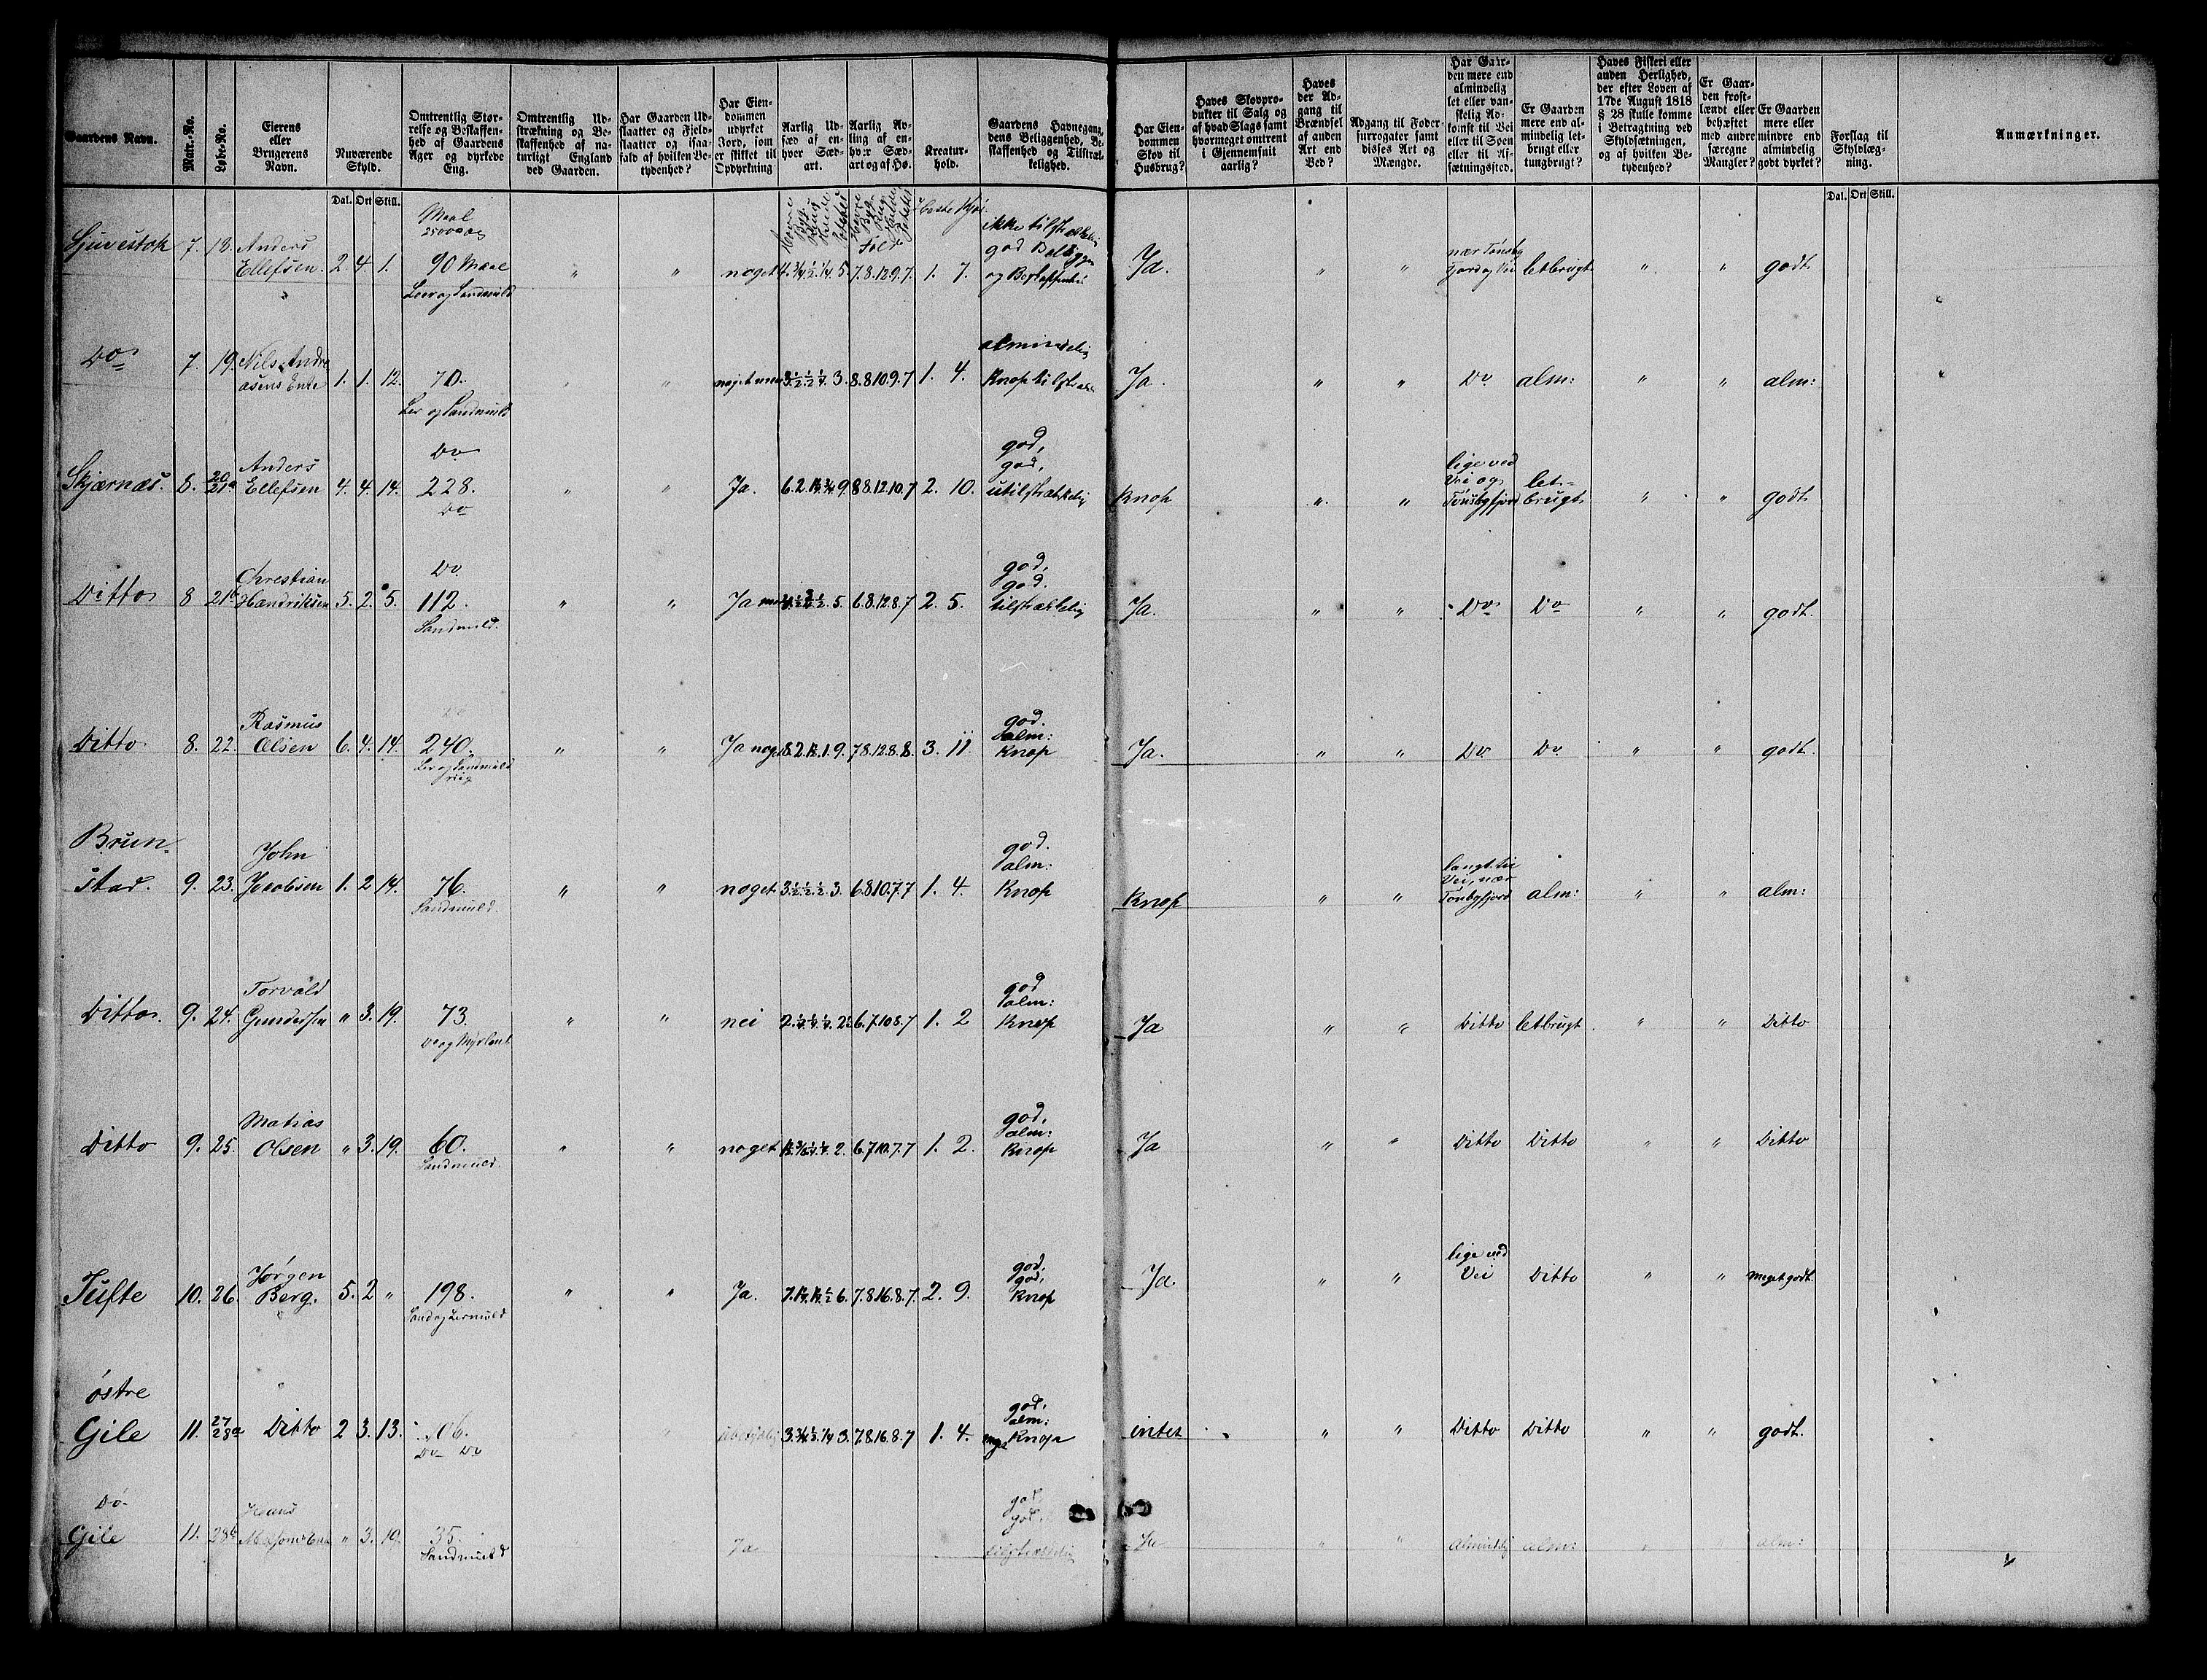 Gaardens Navn.
Matr.-No.
Løbe-No.
Eierens
eller
Brugerens
Navn.
Nuværende
Skyld.
Dal. Ort Skill.
Omtrentlig Stør-
relse og Beskaffen-
hed af Gaardens
Ager og dyrkede
Eng.
Omtrentlig Ud-
strækning og Be-
skaffenhed af na-
turligt England
ved Gaarden.
Har Gaarden Ud-
slaatter og Fjeld-
slaatter og isaa-
fald af hvilken Be-
tydenhed?
Har Eien-
dommen
udyrket
Jord, som
er skikket til
Opdyrkning
Aarlig Ud-
sæd af en-
hver Sæd-
art.
Aarlig Av-
ling af en-
hver Sæd-
art og af Hø.
Kreatur-
hold.
Gaardens Havnegang,
dens Beliggenhed, Be-
skaffenhed og Tilstræk-
kelighed.
Har Eien-
dommen
Skov til
Husbrug?
Haves Skovpro-
dukter til Salg og
af hvad Slags samt
hvormeget omtrent
i Gjennemsnit
aarlig?
Haves
der Ad-
gang til
Brændsel
af anden
Art end
Ved?
Adgang til Foder-
surrogater samt
disses Art og
Mængde.
Har Gaar-
den mere end
almindelig
let eller van-
skelig Ad-
komst til Vei
eller til Søen
eller til Af-
sætningssted.
Er Gaarden
mere end al-
mindelig let-
brugt eller
tungbrugt?
Haves Fiskeri eller
anden Herlighed,
der efter Loven af
17de August 1818
§ 28 skulle komme
i Betragtning ved
Skyldsætningen,
og af hvilken Be-
tydenhed?
Er Gaar-
den frost-
lændt eller
behæftet
med andre
særegne
Mangler?
Er Gaarden
mere eller
mindre end
almindelig
godt dyrket?
Forslag til
Skyldlæg-
ning.
Dal. Ort Skill.
Anmærkninger.
Maal
ikke tilstrækkelig
Anders god nær Tønsb
7. 18. Ellefsen. 2 4 1. 90 Maal " " noget 7.8.12.9.7. 1. 7. Ja. " " letbrugt " " godt
Leer og Sandmuld
almindelig
Do 7. 19. Nils Andre
asens Enke 1. 1. 12. 70. " " 8.8.10.9.7 1. 4. Knap Ja. " " Do alm: " " alm:
Ler og Sandmuld
Do god, lige ved
Anders god, Vei og let-
Skjærnæs. 8. 20 21a Ellefsen 4. 4. 14. 228. " " Ja. 8.8.12.10.7 2. 10. utilstrækkelig Knap " " Tønsbgfjord brugt " " godt
Do
Do god,
Christian god.
Ditto 8 21b Handriksen 5. 2. 5. 112. " " Ja 6.8.12.8.7 2. 5. tilstrækkelig Ja. " " Do Do " " godt.
Sandmuld.
Rasmus god.
alm:
Ditto. 8. 22. Olsen 6. 4. 14. 240. " " Ja noget 7.8.12.8.8. 3. 11. Knap Ja. " " Do Do " " godt.
Ler og Sandmuld
Brun- god.
John alm: Vei, nær
stad. 9. 23. Jacobsen 1. 2 14. 76. " " noget 3. ½. ½. ½. 3. 6.8.10.7.7 1. 4. Knap Knap " " Tønsbgfjord alm: " " alm:
Sandmuld.
Torvald god
alm:
Ditto. 9. 24. Gundersen " 3. 19. 73. " " nei 6.7.10.8.7 1. 2 Knap Ja " " Ditto letbrugt " " Ditto
Do og Myrlænt
Matias god,
alm:
Ditto 9. 25. Olsen " 3. 19. 60. " " noget 6.7.10.7.7 1. 2. Knap Ja " " Ditto Ditto " " Ditto
Sandmuld.
Jørgen god. lige ved
god,
Tufte 10. 26. Berg. 5. 2 " 198. " " Ja. 7.8.16.8.7. 2. 9. Knap Ja " " Vei Ditto " " meget godt.
Sand og Lermuld
østre god,
alm:
Gile 11. 27 28a Ditto 2 3. 13. 106. " " 3. ¾. ½. ¼. 3. 7.8.16.8.7 1. 4. meget Knap intet " " Ditto Ditto " " godt.
Do Do
Do Hans god
god.
Gile 11. 28b " 3. 19. 35. " " Ja tilstrækkelig Ja " " Almindelig alm: " alm:
Sandmuld